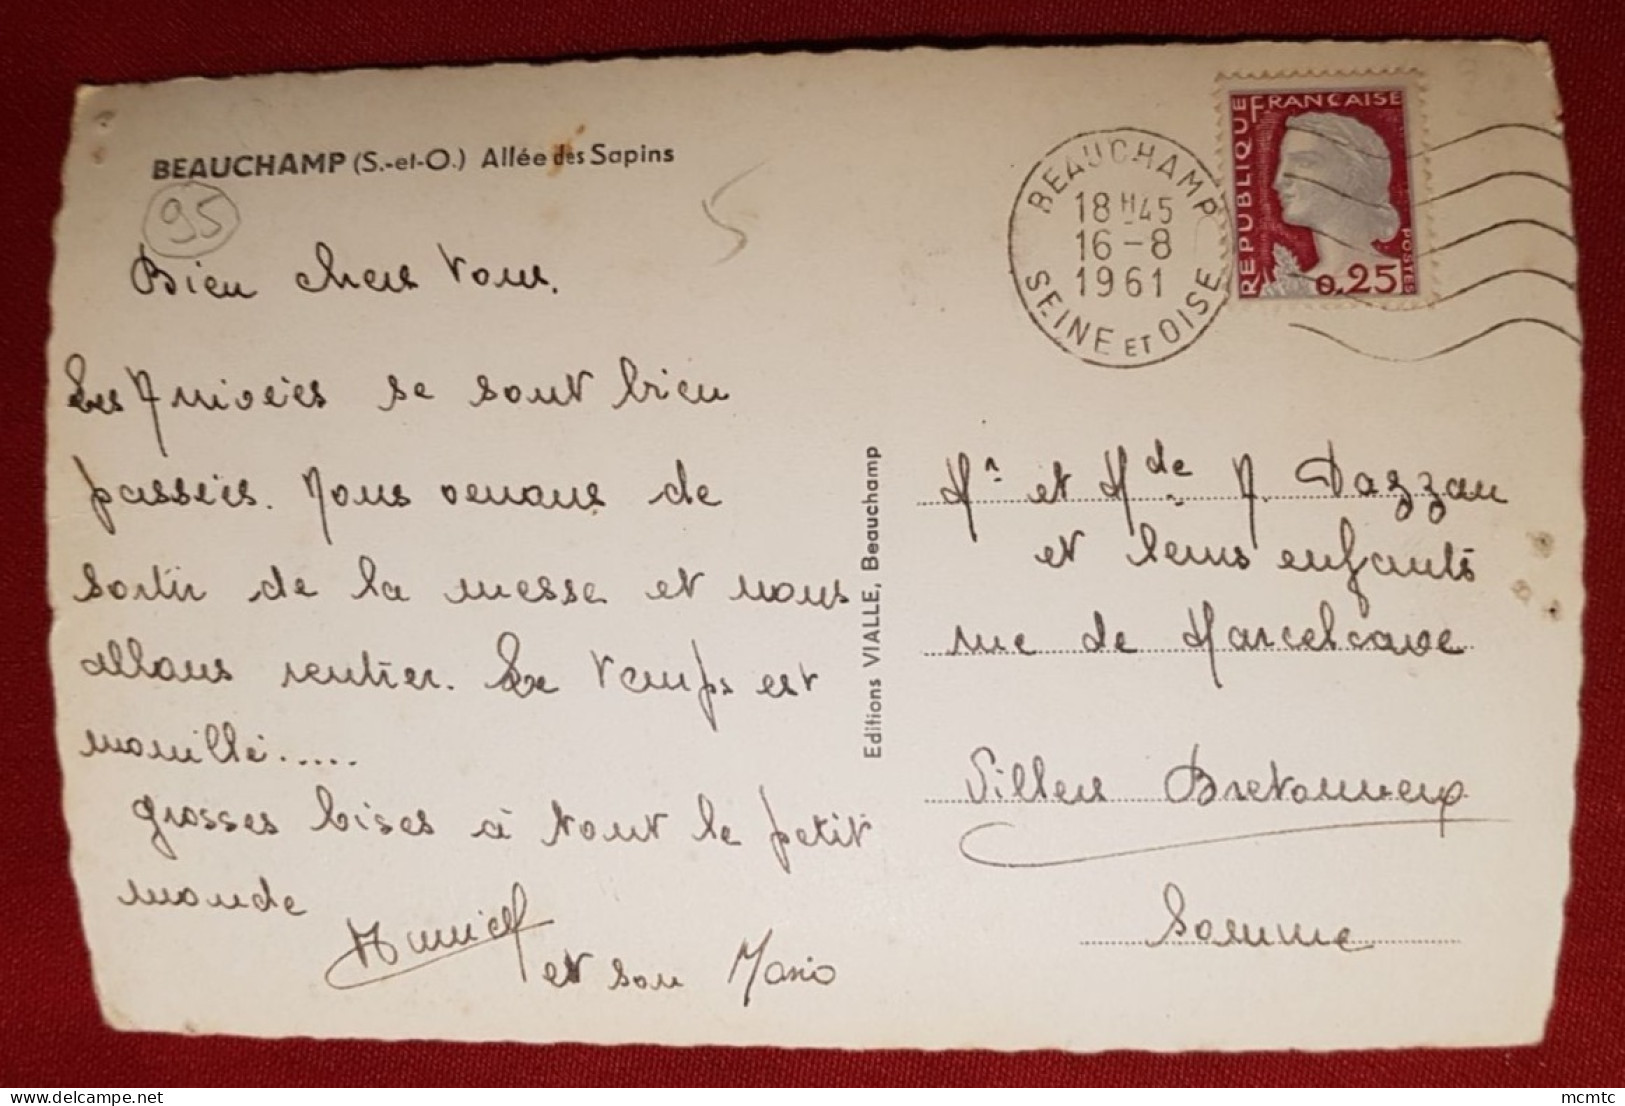 BEAUCHAMP (S.-et-O.) Allée des Sapins
95
Bien chers vous.
Les Arrivées se sont bien
passées. Nous venons de
sortir de la messe et nous
allons rentrer. Le temps est
mouillé.....
grosses bises à tout le petit
monde
et son Mario
Editions VIALLE, Beauchamp
BEAUCHAMP
18 H 45
16 - 8
1961
SEINE ET OISE
REPUBLIQUE FRANCAISE
POSTES
0,25
Mr et Mde A. Dazzan
et leurs enfants
rue de Marcelcave
Villers Bretonneux
Somme
mcmtc